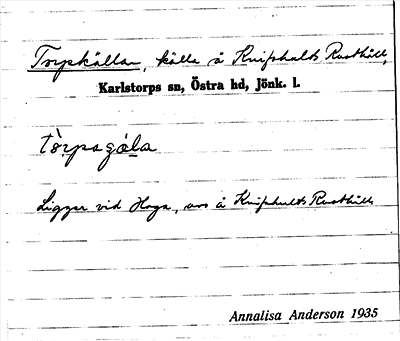 Torpkällan, källa å Knifshults Rusthåll,
Karlstorps sn, Östra hd, Jönk. l.
Ligger vid Haga, avs å Knifshults Rusthåll
Annalisa Anderson 1935